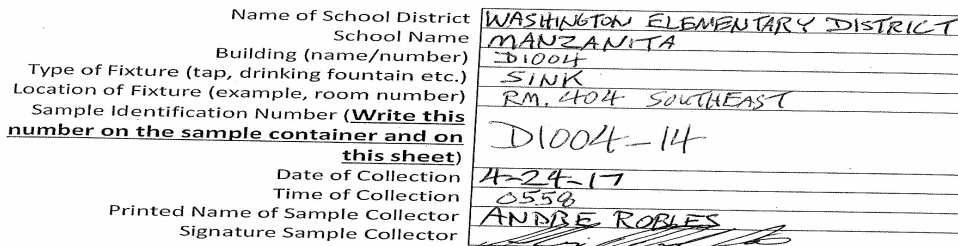 Name of School District WASHINGTON ELEMENTARY DISTRICT
School Name MANZANITA
Building (name/number) D1004
Type of Fixture (tap, drinking fountain etc.) SINK
Location of Fixture (example, room number) RM. 404 SOUTHEAST
Sample Identification Number (Write this
number on the sample container and on
this sheet) D1004-14
Date of Collection 4-24-17
Time of Collection 0558
Printed Name of Sample Collector ANDRE ROBLES
Signature Sample Collector